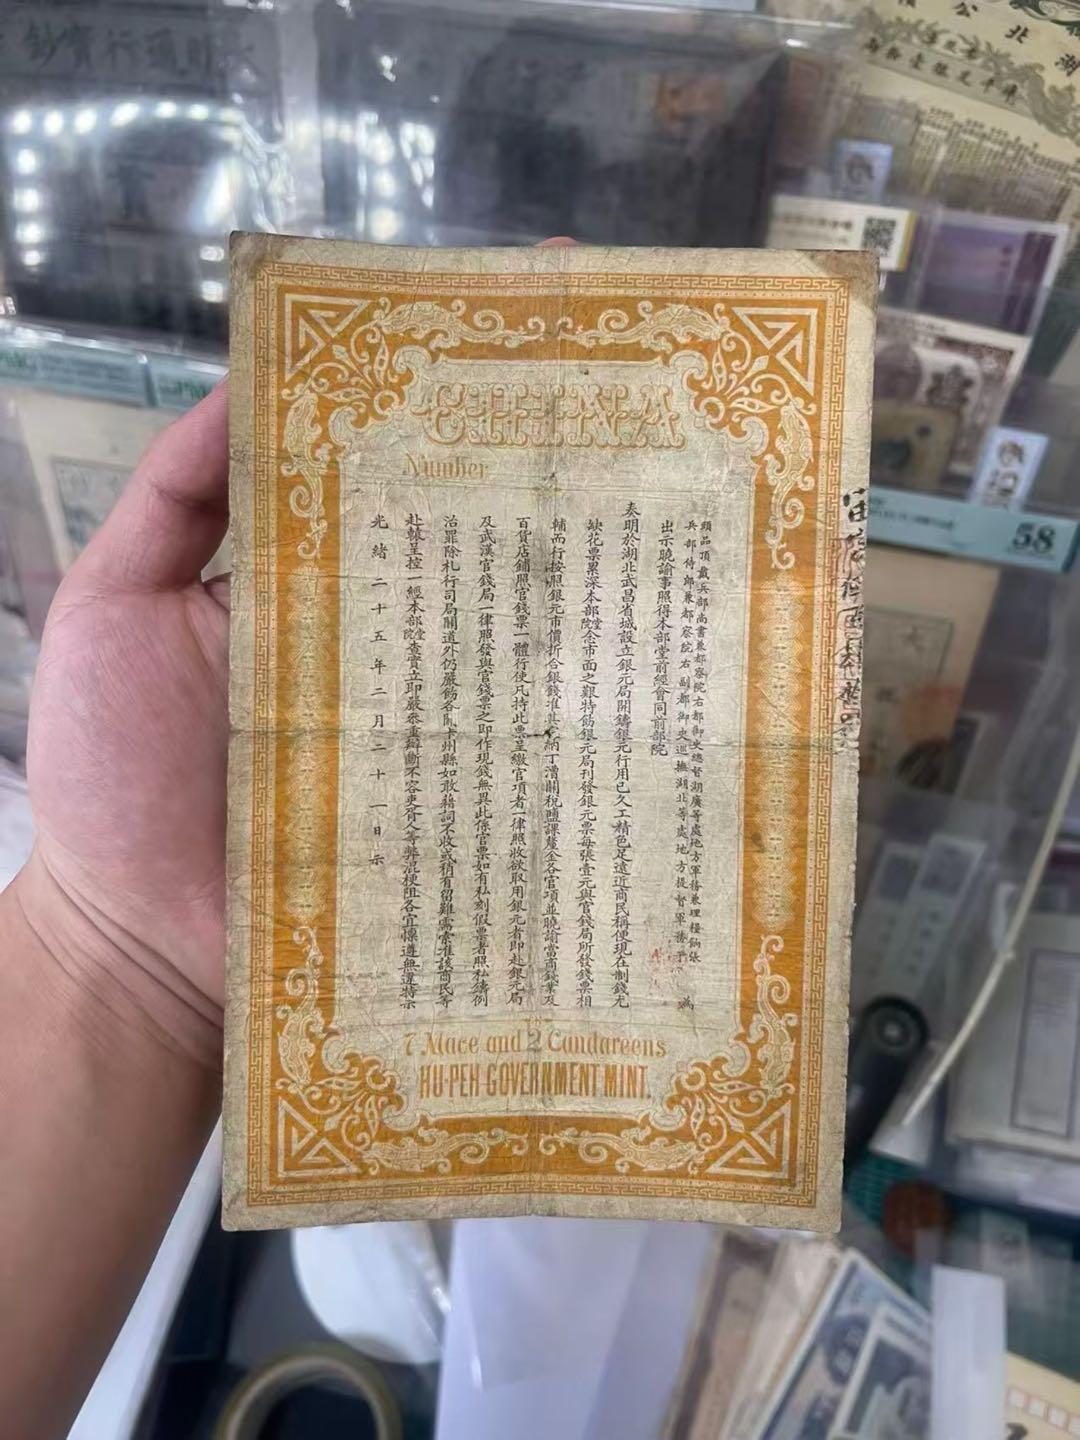 CHINA
Number
頭品頂戴兵部尚書兼都察院右都御史總督湖廣等處地方軍務兼理糧餉張
兵部侍郎兼都察院右副都御史巡撫湖北等處地方提督軍務于
為
出示曉諭事照得本部堂前經會同前部院
奏明於湖北武昌省城設立銀元局開鑄銀元行用已久工精色足遠近商民稱便現在制錢尤
缺花票累深本部堂院念市面之艱特飭銀元局刊發銀元票每張壹元與官錢局所發錢票相
輔而行按照銀元市價折合銀錢准其完納丁漕關稅鹽課釐金各官項並曉諭當商錢業及
百貨店鋪照官錢票一體行使凡持此票呈繳官項者一律照收欲取用銀元者即赴銀元局
及武漢官錢局一律照發與官錢票之即作現錢無異此係官票如有私刻假票者照私鑄例
治罪除札行司局關道外仍嚴飭各屬州縣如敢藉詞不收或稍有留難需索准該商民等
赴轅呈控一經本部堂院查實立即嚴參重辦斷不容吏胥人等弊混梗阻各宜懍遵無違特示
光緒二十五年二月二十一日示
7 Mace and 2 Candareens
HU-PEH GOVERNMENT MINT.
58